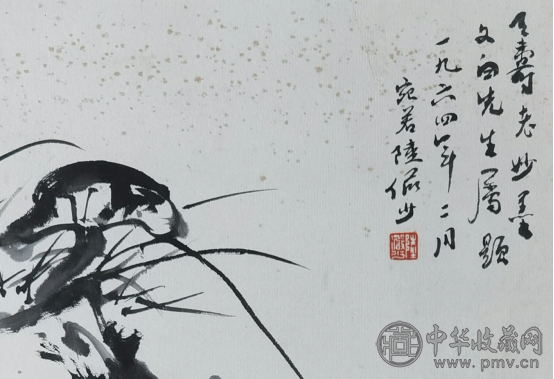 天寿老妙墨
文白先生属题
一九六四年二月
宛若陆俨少
中华收藏网
www.pmv.cn